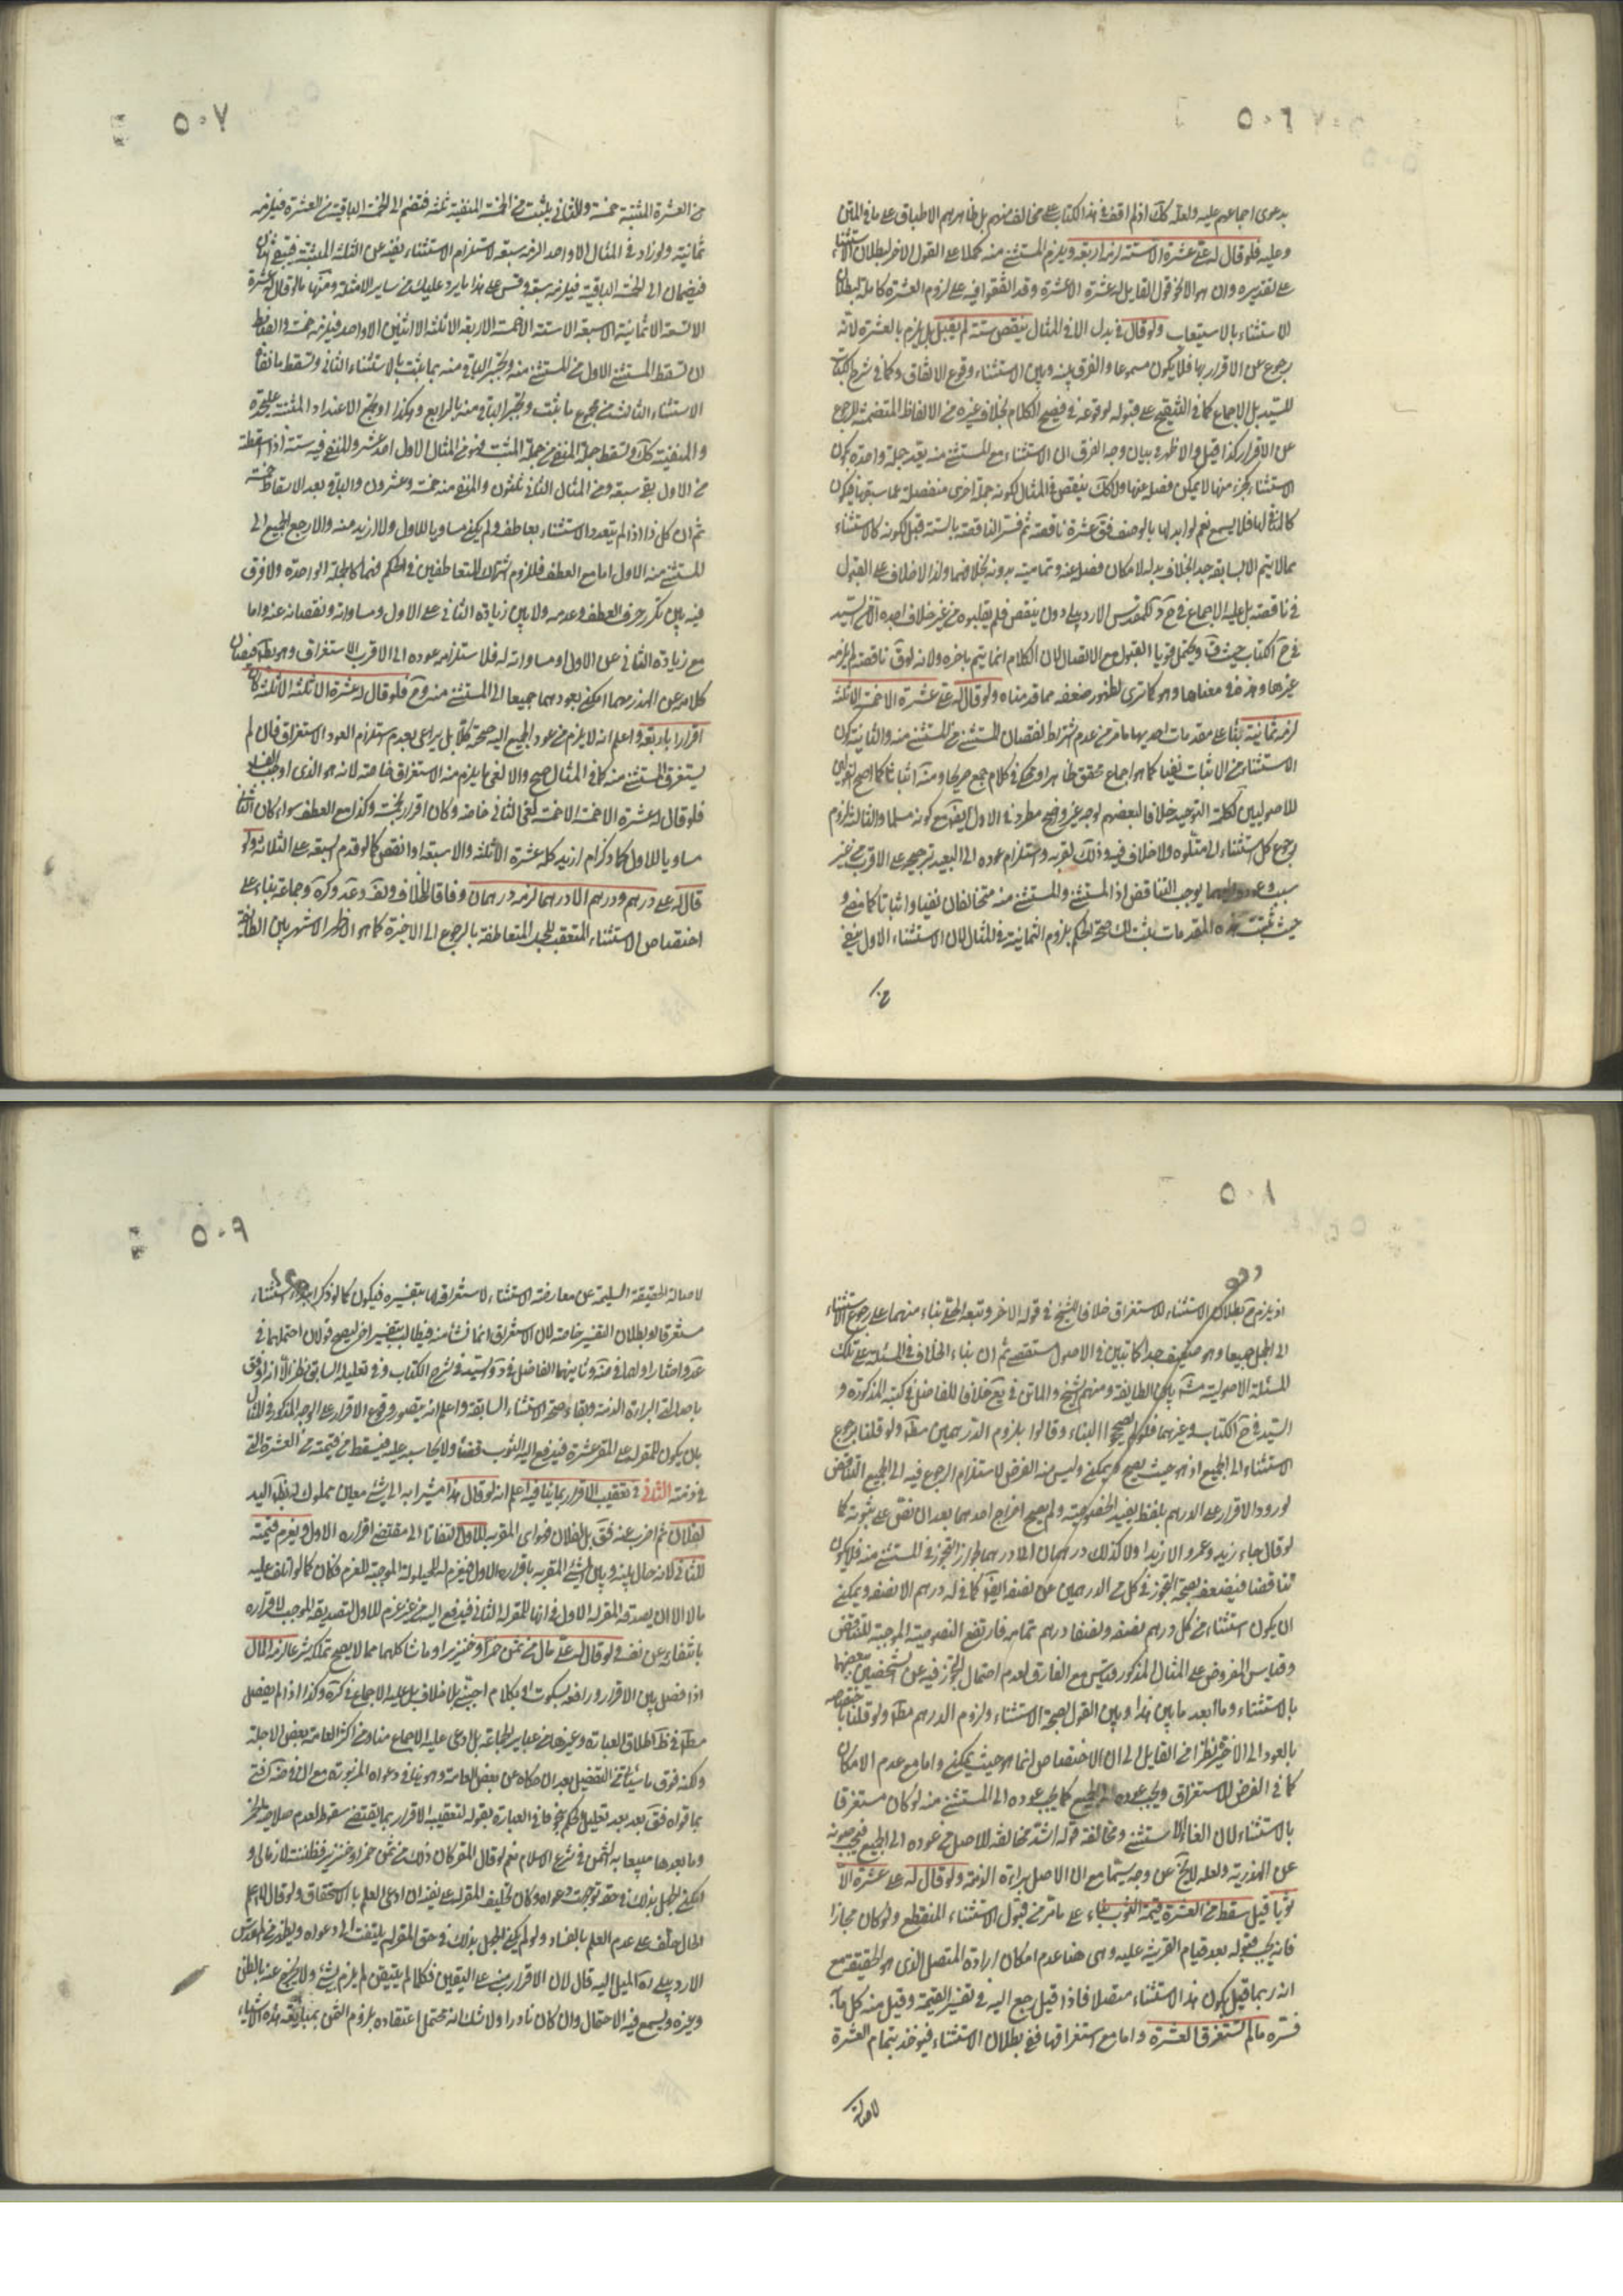 ٥٠٦
بدعوى اجماعهم عليه ولعله كك اذ لم اقف في هذا الكتاب على مخالف منهم بل ظاهرهم الاطباق على ما في المتن
وعليه فلو قال له على عشرة الا ستة لزمه اربعة ويلزم المستثنى منه كملا على القول الاخر لبطلان الاستثناء
على تقديره وان هو الا كقول القايل له عشرة الا عشرة وقد اتفقوا فيه على لزوم العشرة كاملة لبطلان
الاستثناء بالاستيعاب ولو قال في بدل الا في المثال ينقص ستة لم يقبل بل يلزم بالعشرة لانه
رجوع عن الاقرار بها فلا يكون مسموعا والفرق بينه وبين الاستثناء وقوع الاتفاق كما في شرح الكتاب
للسيد بل الاجماع كما في التنقيح على قبوله لوقوعه في فصيح الكلام بخلاف غيره من الالفاظ المتضمنة للرجوع
عن الاقرار كذا قيل والاظهر في بيان وجه الفرق ان الاستثناء مع المستثنى منه يعد جملة واحدة يكون
الاستثناء جزء منها لا يمكن فصله عنها ولا كك ينقص في المثال لكونه جملة اخرى منفصلة عما سبقها فيكون
كالمنافي لها فلا يسمع نعم لو ابدلها بالوصف فق عشرة ناقصة ثم فسر الناقصة بالستة قبل لكونه كالاستثناء
مما لا يتم الا بسابقه جدا بخلاف بدله لامكان فصله عنه وتماميته بدونه بخلافهما ولذا لا خلاف على القبول
في ناقصة بل عليه الاجماع في ح د للمقدس الاردبيلي دون ينقص فلم يقبلوه من غير خلاف اجده الا من السيد
في ح الكتاب حيث ق ويحتمل قويا القبول مع الاتصال لان الكلام انما يتم باخره ولانه لو ق ناقصة لم يلزمه
غيرها وهذه في معناها وهو كما ترى لظهور ضعفه مما قدمناه ولو قال له على عشرة الا خمسة الا ثلثة
لزمه ثمانية بناء على مقدمات احديها ما مر من عدم اشتراط نقصان المستثنى من المستثنى منه والثانية كون
الاستثناء من الاثبات نفيا كما هو اجماع محقق ظاهرا ومحكي في كلام جمع صريحا ومن النفي اثباتا كما اصح القولين
للاصوليين لكلمة التوحيد خلافا لبعضهم لوجه غير واضح مطرد في الاول ايض مع كونه مسلما والثالثة لزوم
رجوع كل استثناء الى متلوه ولا خلاف فيه وذلك لقربه واستلزام عوده الى البعيد ترجيحه على الاقرب من غير
سبب وعوده اليهما يوجب التناقض اذ المستثنى والمستثنى منه متخالفان نفيا واثباتا كما مضى و
حيث ثبتت هذه المقدمات ثبت لك صحة الحكم بلزوم الثمانية في المثال لان الاستثناء الاول ينفي
٥٠٧
من العشرة المثبتة خمسة والثاني يثبت من الخمسة المنفية ثلثة فتضم الى الخمسة الباقية من العشرة فيلزمه
ثمانية ولو زاد في المثال الا واحد الزمه سبعة لاستلزام الاستثناء نفيه عن الثلثة المثبتة فيبقى اثنان
فيضمان الى الخمسة الباقية فيلزمه سبعة وقس على هذا ما يرد عليك من ساير الامثلة ومنها ما لو قال له عشرة
الا تسعة الا ثمانية الا سبعة الا ستة الا خمسة الا اربعة الا ثلثة الا اثنين الا واحد فيلزمه خمسة والضابط
ان تسقط المستثنى الاول من المستثنى منه وتجبر الباقي منه بما يثبت بالاستثناء الثاني وتسقط ما نفاه
الاستثناء الثالث من مجموع ما ثبت وتجبر الباقي منه بالرابع وهكذا او تجمع الاعداد المثبتة على حدة
والمنفية كك وتسقط جملة المنفي من جملة المثبت فهو في المثال الاول احد عشر والمنفي فيه ستة اذا اسقطته
من الاول بقي سبعة وفي المثال الثاني ثلثون والمنفي منه خمسة وعشرون والباقي بعد الاسقاط خمسة
ثم ان كل ذا اذا لم يتعدد الاستثناء بعاطف ولم يكن مساويا للاول ولا ازيد منه والا رجع الجميع الى
المستثنى منه الاول اما مع العطف فللزوم اشتراك المتعاطفين في الحكم فهما كالجملة الواحدة ولا فرق
فيه بين تكرر حرف العطف وعدمه ولا بين زيادة الثاني على الاول ومساواته ونقصانه عنه واما
مع زيادة الثاني عن الاول او مساواته له فلاستلزام عوده الى الاقرب الاستغراق وهو بط فيصان
كلامه عن الهذر مهما امكن بعودهما جميعا الى المستثنى منه وح فلو قال له عشرة الا ثلثة الا ثلثة كان
اقرارا باربعة واعلم انه لا يلزم من عود الجميع اليه صحة كل بل يراعى بعدم استلزام العود الاستغراق فان لم
يستغرق المستثنى منه كما في المثال صح والا لغى ما يلزم منه الاستغراق خاصة لانه هو الذي اوجب الفساد
فلو قال له عشرة الا خمسة الا خمسة لغى الثاني خاصة وكان اقرارا بخمسة وكذا مع العطف سواء كان الثاني
مساويا للاول كما ذكرام ازيد كله عشرة الا ثلثة والا سبعة او انقص كما لو قدم السبعة على الثلاثة ولو
قال له على درهم ودرهم الا درهما لزمه درهمان وفاقا للخلاف وئع ود وعد وكره وجماعة بناء على
اختصاص الاستثناء المتعقب للجمل المتعاطفة بالرجوع الى الاخيرة كما هو الاظهر الاشهر بين الطائفة
٥٠٨
اذ يلزم ح بطلان الاستثناء للاستغراق خلافا للشيخ في قوله الاخر وتبعه الحلي بناء منهما على رجوع الاستثناء
الى الجمل جميعا وهو ضعيف جدا كما تبين في الاصول مستقصى ثم ان بناء الخلاف في المسئلة على تلك
المسئلة الاصولية محكي الطايفة ومنهم الشيخ والماتن في يع خلافا للفاضل في كتبه المذكورة و
السيد في ح الكتاب وغيرهما فلم يصححوا البناء وقالوا بلزوم الدرهمين مط ولو قلنا برجوع
الاستثناء الى الجميع اذ هو حيث يصح ويمكن وليس منه الفرض لاستلزام الرجوع فيه الى الجميع التناقض
لورود الاقرار على الدرهم بلفظ يفيد النصوصية ولم يصح اخراج احدهما بعد ان نص على ثبوته كما
لو قال جاء زيد وعمرو الا زيدا ولا كذلك درهمان الا درهما لجواز التجوز في المستثنى منه فلا يكون
تناقضا فيضعف بصحة التجوز في كل من الدرهمين عن نصفه ايض كما في له درهم الا نصفه ويمكن
ان يكون استثناء من كل درهم نصفه ونصفا درهم تمامه فارتفع النصوصية الموجبة للتناقض
وقياس المفروض على المثال المذكور قياس مع الفارق لعدم احتمال التجوز فيه عن الشخصين ببعضهما
بالاستثناء وما ابعد ما بين هذا وبين القول بصحة الاستثناء ولزوم الدرهم مط ولو قلنا باختصاصه
بالعود الى الاخيرة نظرا من القايل الى ان الاختصاص انما هو حيث يمكن واما مع عدم الامكان
كما في الفرض للاستغراق ويجب عوده الى الجميع كما يجب عوده الى المستثنى منه لو كان مستغرقا
بالاستثناء لان الغاء الاستثناء ومخالفة قوله اشد مخالفة للاصل من عوده الى الجميع فيجب صونه
عن الهذرية ولعله لا يخ عن وجه سيما مع ان الاصل براءة الذمة ولو قال له على عشرة الا
ثوبا قيل سقط من العشرة قيمة الثوب بناء على ما مر من قبول الاستثناء المنقطع ولو كان مجازا
فانه يجب قبوله بعد قيام القرينة عليه وهي هنا عدم امكان ارادة المتصل الذي هو الحقيقة مع
انه ربما قيل بكون هذا الاستثناء متصلا فاذا قبل رجع اليه في تفسير القيمة وقبل منه كل ما
فسره ما لم تستغرق العشرة واما مع استغراقها ففي بطلان الاستثناء فيؤخذ بتمام العشرة
لاصالة
٥٠٩
لاصالة الحقيقة السليمة عن معارضة الاستثناء لاستغراقه بتفسيره فيكون كما لو ذكر ابتداء استثناء
مستغرقا او بطلان التفسير خاصة لان الاستغراق انما نشأ منه فيطالب بتفسير اخر ليصح قولان احتملهما في
عد واختار اولهما في منه وثانيهما الفاضل في د والسيد في شرح الكتاب وفي تعليله السابق نظر الا انه اوفق
باصالتي البراءة الذمة وبقاء صحة الاستثناء السابقة واعلم انه يتصور وقوع الاقرار على الوجه المذكور في المثال
بان يكون للمقر له على المقر عشرة فيدفع اليه الثوب قضاء ولا يحاسبه عليه فيسقط من قيمته من العشرة التي
في ذمته الثاني في تعقيب الاقرار بما ينافيه اعلم انه لو قال هذا مشيرا به الى شيء معين مملوك له بظ اليد
لفلان ثم اضرب عنه فق بل لفلان فهو اي المقر به للاول التفاتا الى مقتضى اقراره الاول ويغرم قيمته
للثاني لانه حال بينه وبين الشيء المقر به باقراره للاول فيغرم له للحيلولة الموجبة للغرم فكان كما لو اتلف عليه
مالا الا ان يصدقه المقر له الاول في انها للمقر له الثاني فيدفع اليه من غير غرم للاول لتصديقه الموجب لاقراره
بانتفائه عن نفسه ولو قال له على مال من ثمن خمر او خنزير او ما شاكلهما مما لا يصح تملكه شرعا لزمه المال
اذا فصل بين الاقرار ورافعه بسكوت او بكلام اجنبي بلا خلاف بل عليه الاجماع في كره وكذا اذا لم يفصل
مط في ظ اطلاق العبارة وغيرها من عباير الجماعة بل ادعى عليه الاجماع منا ومن اكثر العامة بعض الاجلة
ولكنه فوق ما سيأتي من التفصيل بعد ان حكاه عن بعض العامة وهو ينافي دعواه المزبورة مع انه
بما قواه فق بعد بعد تعليل الحكم بنحو ما في العبارة بقوله لتعقيبه الاقرار بما يقتضي سقوطه لعدم صلاحية الخمر
وما بعدها مبيعا به الثمن في شرع الاسلام نعم لو قال المقر كان ذلك من ثمن خمر او خنزير فظننته لازما لي و
امكن الجهل بذلك في حقه توجهت دعواه وكان تحليف المقر له على نفيه ان ادعى العلم بالاستحقاق ولو قال لا اعلم
الحال حلف على عدم العلم بالفساد ولو لم يمكن الجهل بذلك في حق المقر لم يلتفت الى دعواه ويظهر من المقدس
الاردبيلي ره الميل اليه قال لان الاقرار مبني على اليقين فكلما لم يتيقن لم يلزم بشيء ولا يخرج عنه بالظن
وغيره ويسمع فيه الاحتمال وان كان نادرا ولا شك انه محتمل اعتقاده بلزوم الثمن بمبايعة هذه الاشياء